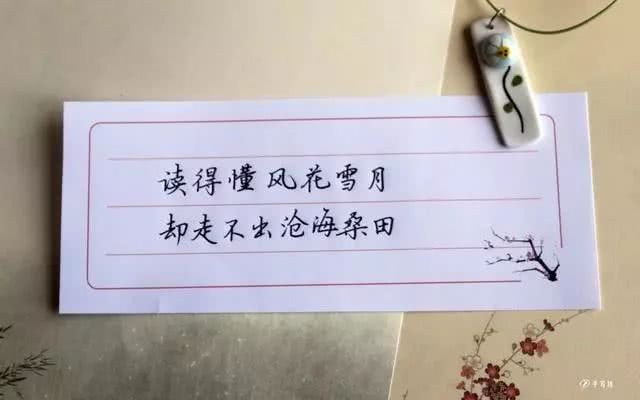 读得懂风花雪月
却走不出沧海桑田